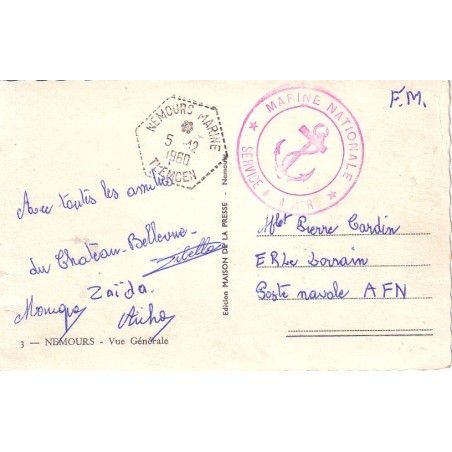 F.M.
NEMOURS MARINE
5 -12
1960
TLEMCEN
★ MARINE NATIONALE ★
SERVICE A LA MER
Avec toutes les amitiés
du Chateau-Bellevue-
Zaïda
Monique
Aïcha
Edition MAISON DE LA PRESSE - Nemours
Pierre Cardin
E R Le Lorrain
Poste navale AFN
3 — NEMOURS - Vue Générale